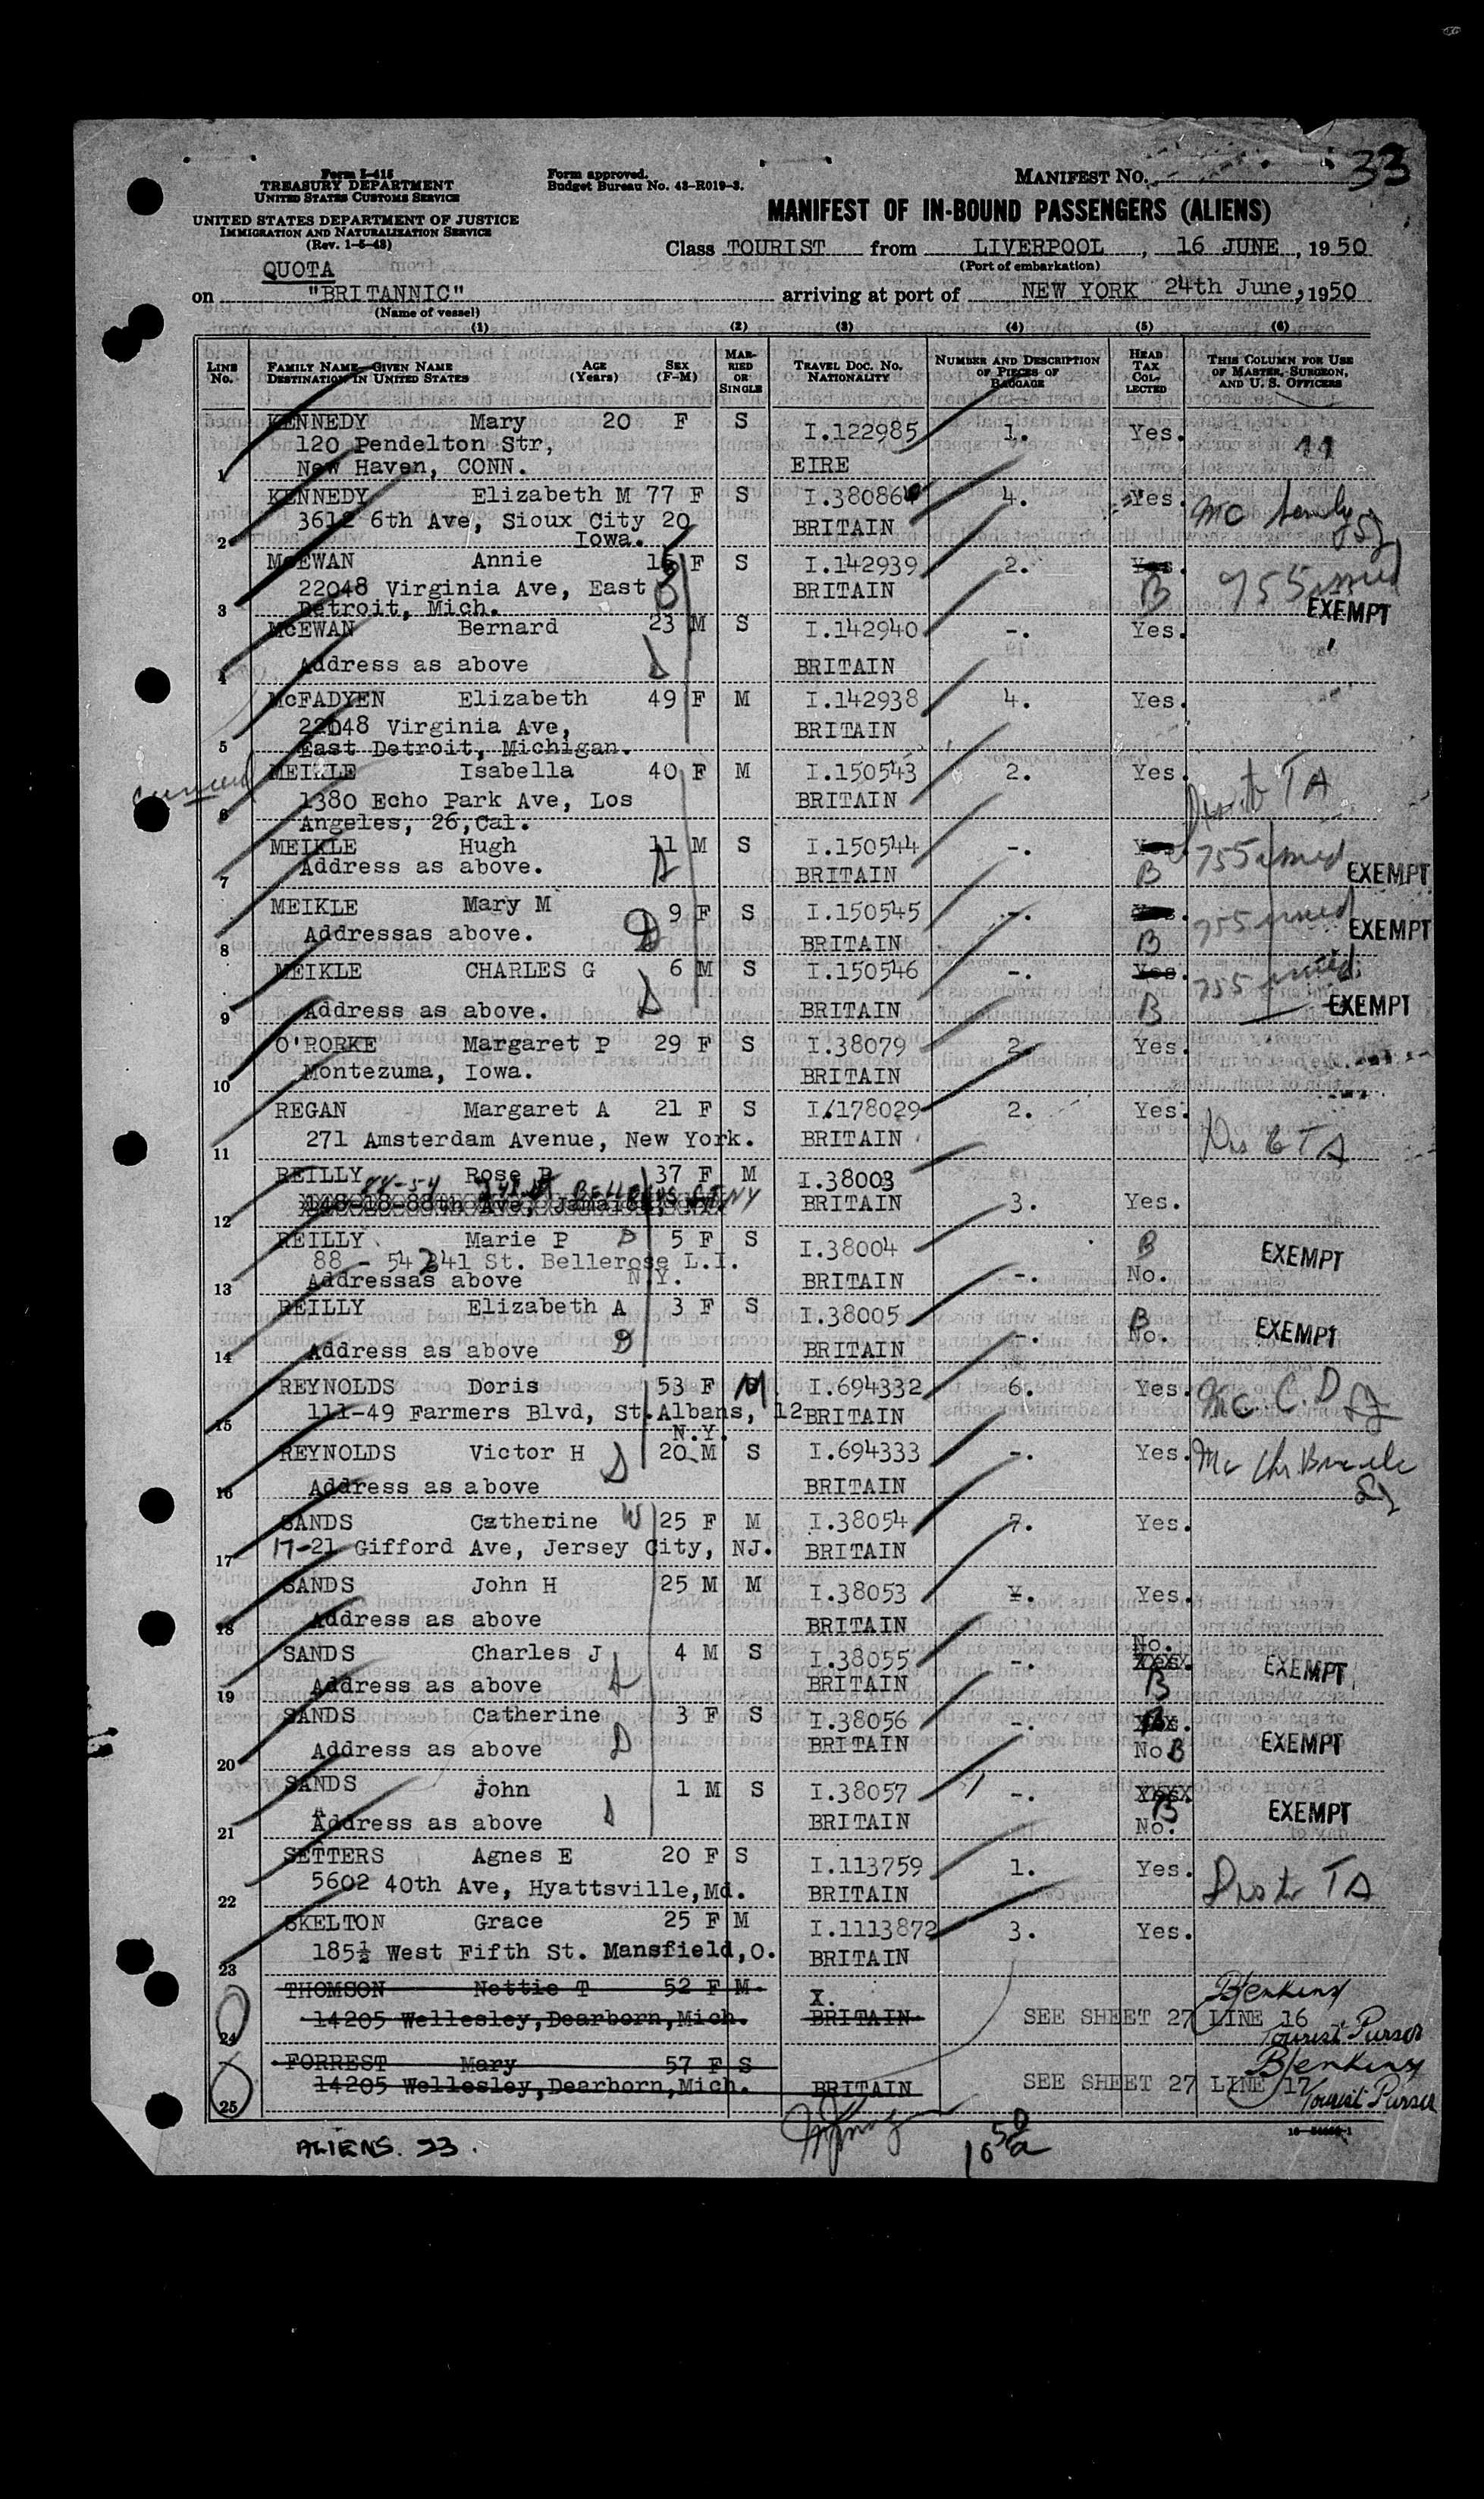 33
Form I-415
TREASURY DEPARTMENT
UNITED STATES CUSTOMS SERVICE
Form approved.
Budget Bureau No. 43-R019-3.
MANIFEST NO.
UNITED STATES DEPARTMENT OF JUSTICE
IMMIGRATION AND NATURALIZATION SERVICE
(Rev. 1-5-48)
MANIFEST OF IN-BOUND PASSENGERS (ALIENS)
Class TOURIST from LIVERPOOL, 16 JUNE, 1950
(Port of embarkation)
QUOTA
on "BRITANNIC" arriving at port of NEW YORK 24th June, 1950
(Name of vessel)
(1) (2) (3) (4) (5) (6)
LINE No. FAMILY NAME—GIVEN NAME DESTINATION IN UNITED STATES AGE (Years) SEX (F-M) MARRIED OR SINGLE TRAVEL DOC. NO. NATIONALITY NUMBER AND DESCRIPTION OF PIECES OF BAGGAGE HEAD TAX COLLECTED THIS COLUMN FOR USE OF MASTER, SURGEON, AND U. S. OFFICERS
KENNEDY Mary 20 F S I.122985 1. Yes.
120 Pendelton Str,
1 New Haven, CONN. EIRE
KENNEDY Elizabeth M 77 F S I.38086 4. Yes.
3612 6th Ave, Sioux City 20 BRITAIN
2 Iowa.
McEWAN Annie F S I.142939 2. Yes.
22048 Virginia Ave, East BRITAIN B 755 issued
3 Detroit, Mich. EXEMPT
McEWAN Bernard 23 M S I.142940 -. Yes.
4 Address as above BRITAIN
McFADYEN Elizabeth 49 F M I.142938 4. Yes.
22048 Virginia Ave, BRITAIN
5 East Detroit, Michigan.
MEIKLE Isabella 40 F M I.150543 2. Yes. TA
1380 Echo Park Ave, Los BRITAIN
6 Angeles, 26, Cal.
MEIKLE Hugh 11 M S I.150544 -. Yes 755 issued
7 Address as above. BRITAIN B EXEMPT
MEIKLE Mary M 9 F S I.150545 -. 755 issued
8 Addressas above. D BRITAIN B EXEMPT
MEIKLE CHARLES G 6 M S I.150546 -. Yes. 755 issued
9 Address as above. BRITAIN B EXEMPT
O'RORKE Margaret P 29 F S I.38079 2. Yes.
10 Montezuma, Iowa. BRITAIN
REGAN Margaret A 21 F S I/178029 2. Yes.
11 271 Amsterdam Avenue, New York. BRITAIN TA
REILLY Rose 37 F M I.38003
88-54 241 ST BELLEROSE NY
12 148-18-88th Ave, Jamaica, BRITAIN 3. Yes.
REILLY Marie P 5 F S I.38004 B EXEMPT
88 - 54 241 St. Bellerose L.I.
13 Addressas above N.Y. BRITAIN -. No.
REILLY Elizabeth A 3 F S I.38005 B
14 Address as above BRITAIN -. No. EXEMPT
REYNOLDS Doris 53 F M I.694332 6. Yes.
15 111-49 Farmers Blvd, St.Albans, 12 BRITAIN
N.Y.
REYNOLDS Victor H 20 M S I.694333 -. Yes.
16 Address as above BRITAIN
SANDS Catherine W 25 F M I.38054 7. Yes.
17 17-21 Gifford Ave, Jersey City, NJ. BRITAIN
SANDS John H 25 M M I.38053 Yes.
18 Address as above BRITAIN
SANDS Charles J 4 M S I.38055 -. No. EXEMPT
19 Address as above BRITAIN B
SANDS Catherine 3 F S I.38056 -.
20 Address as above D BRITAIN No B EXEMPT
SANDS John 1 M S I.38057 -.
21 Address as above BRITAIN B No. EXEMPT
SETTERS Agnes E 20 F S I.113759 1. Yes. TA
22 5602 40th Ave, Hyattsville, Md. BRITAIN
SKELTON Grace 25 F M I.1113872 3. Yes.
23 185½ West Fifth St. Mansfield, O. BRITAIN
THOMSON Nettie T 52 F M. X. BJenkins
24 14205 Wellesley, Dearborn, Mich. BRITAIN SEE SHEET 27 LINE 16 Tourist Purser
FORREST Mary 57 F S BJenkins
25 14205 Wellesley, Dearborn, Mich. BRITAIN SEE SHEET 27 LINE 17 Tourist Purser
ALIENS. 23.